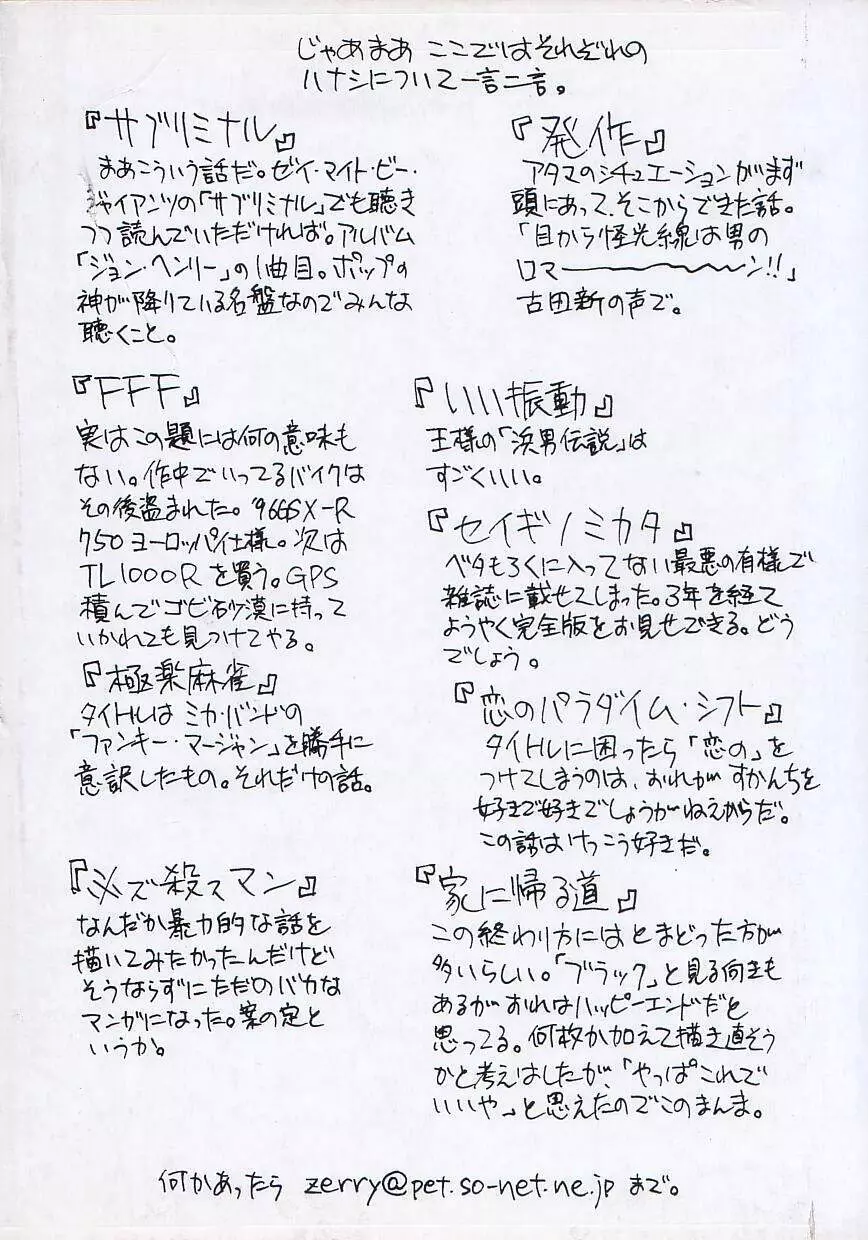 じゃあまあ ここではそれぞれの
ハナシについて一言二言。
『サブリミナル』
まあこういう話だ。ゼイ・マイト・ビー・
ジャイアンツの「サブリミナル」でも聴き
つつ読んでいただければ。アルバム
「ジョン・ヘンリー」の1曲目。ポップの
神が降りている名盤なのでみんな
聴くこと。
『発作』
アタマのシチュエーションがまず
頭にあって、そこからできた話。
「目から怪光線は男の
ロマーーーーン!!」
古田新の声で。
『FFF』
実はこの題には何の意味も
ない。作中でいってるバイクは
その後盗まれた。'96GSX-R
750ヨーロッパ仕様。次は
TL1000Rを買う。GPS
積んでゴビ砂漠に持って
いかれても見つけてやる。
『いい振動』
王様の「浜男伝説」は
すごくいい。
『セイギノミカタ』
ベタもろくに入ってない最悪の有様で
雑誌に載せてしまった。3年を経て
ようやく完全版をお見せできる。どう
でしょう。
『極楽麻雀』
タイトルは ミカ・バンドの
「ファンキー・マージャン」を勝手に
意訳したもの。それだけの話。
『恋のパラダイム・シフト』
タイトルに困ったら「恋の」を
つけてしまうのは、おれが すかんちを
好きで好きでしょうがねえからだ。
この話はけっこう好きだ。
『必ズ殺スマン』
なんだか暴力的な話を
描いてみたかったんだけど
そうならずにただのバカな
マンガになった。案の定と
いうか。
『家に帰る道』
この終わり方にはとまどった方が
多いらしい。「ブラック」と見る向きも
あるが おれはハッピーエンドだと
思ってる。何枚か加えて描き直そう
かと考えはしたが、「やっぱこれで
いいや」と思えたのでこのまんま。
何かあったら zerry@pet.so-net.ne.jp まで。